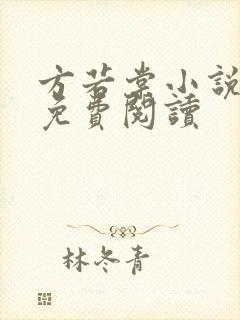 方若棠小說
免費閱讀
林冬青